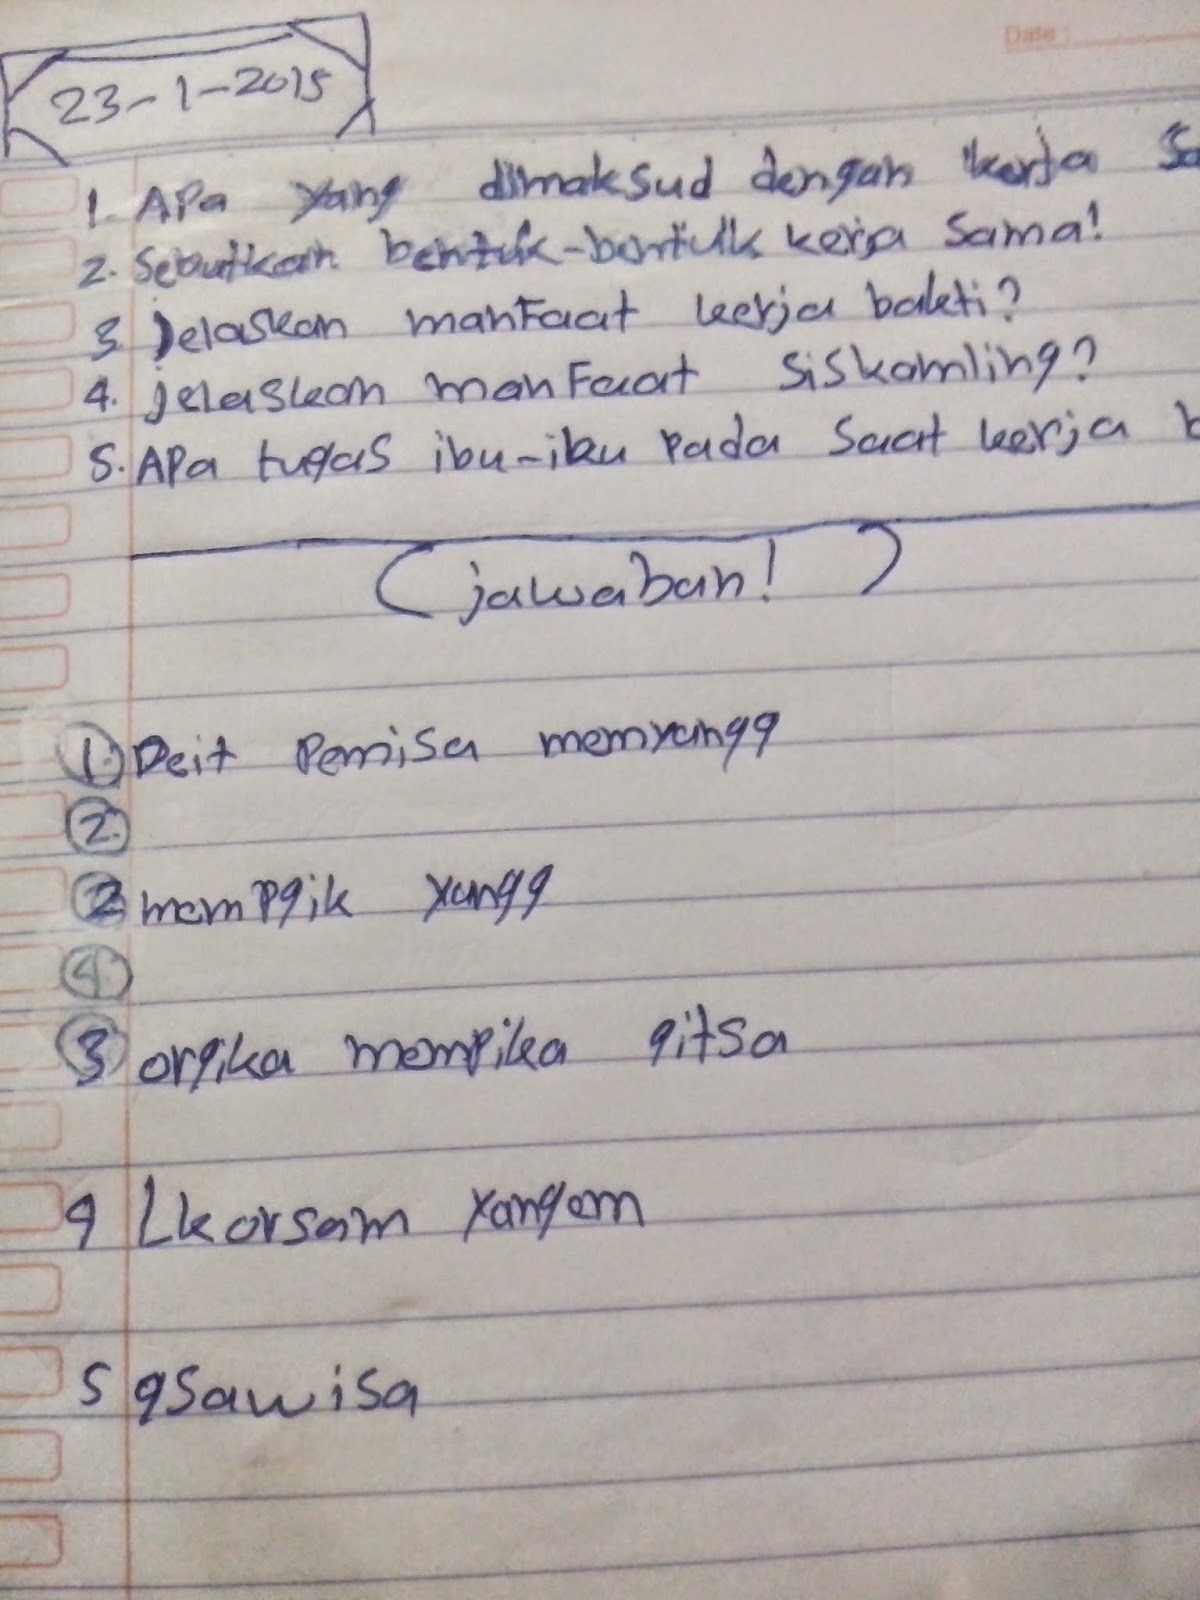 Date :
23-1-2015
1. APa yang dimaksud dengan kerja Sa
2. Sebutkan bentuk-bentulk kerja Sama!
3. Jelaskan manFaat kerja bakti?
4. jelaskan manFaat Siskamling?
5. APa tugas ibu-iku Pada Saat kerja b
(jawaban!)
1. Deit Pemisa memyangg
2.
2. memPgik yangg
4.
3 orgika mempika gitsa
4 Lkorsam yangem
5 gsawisa